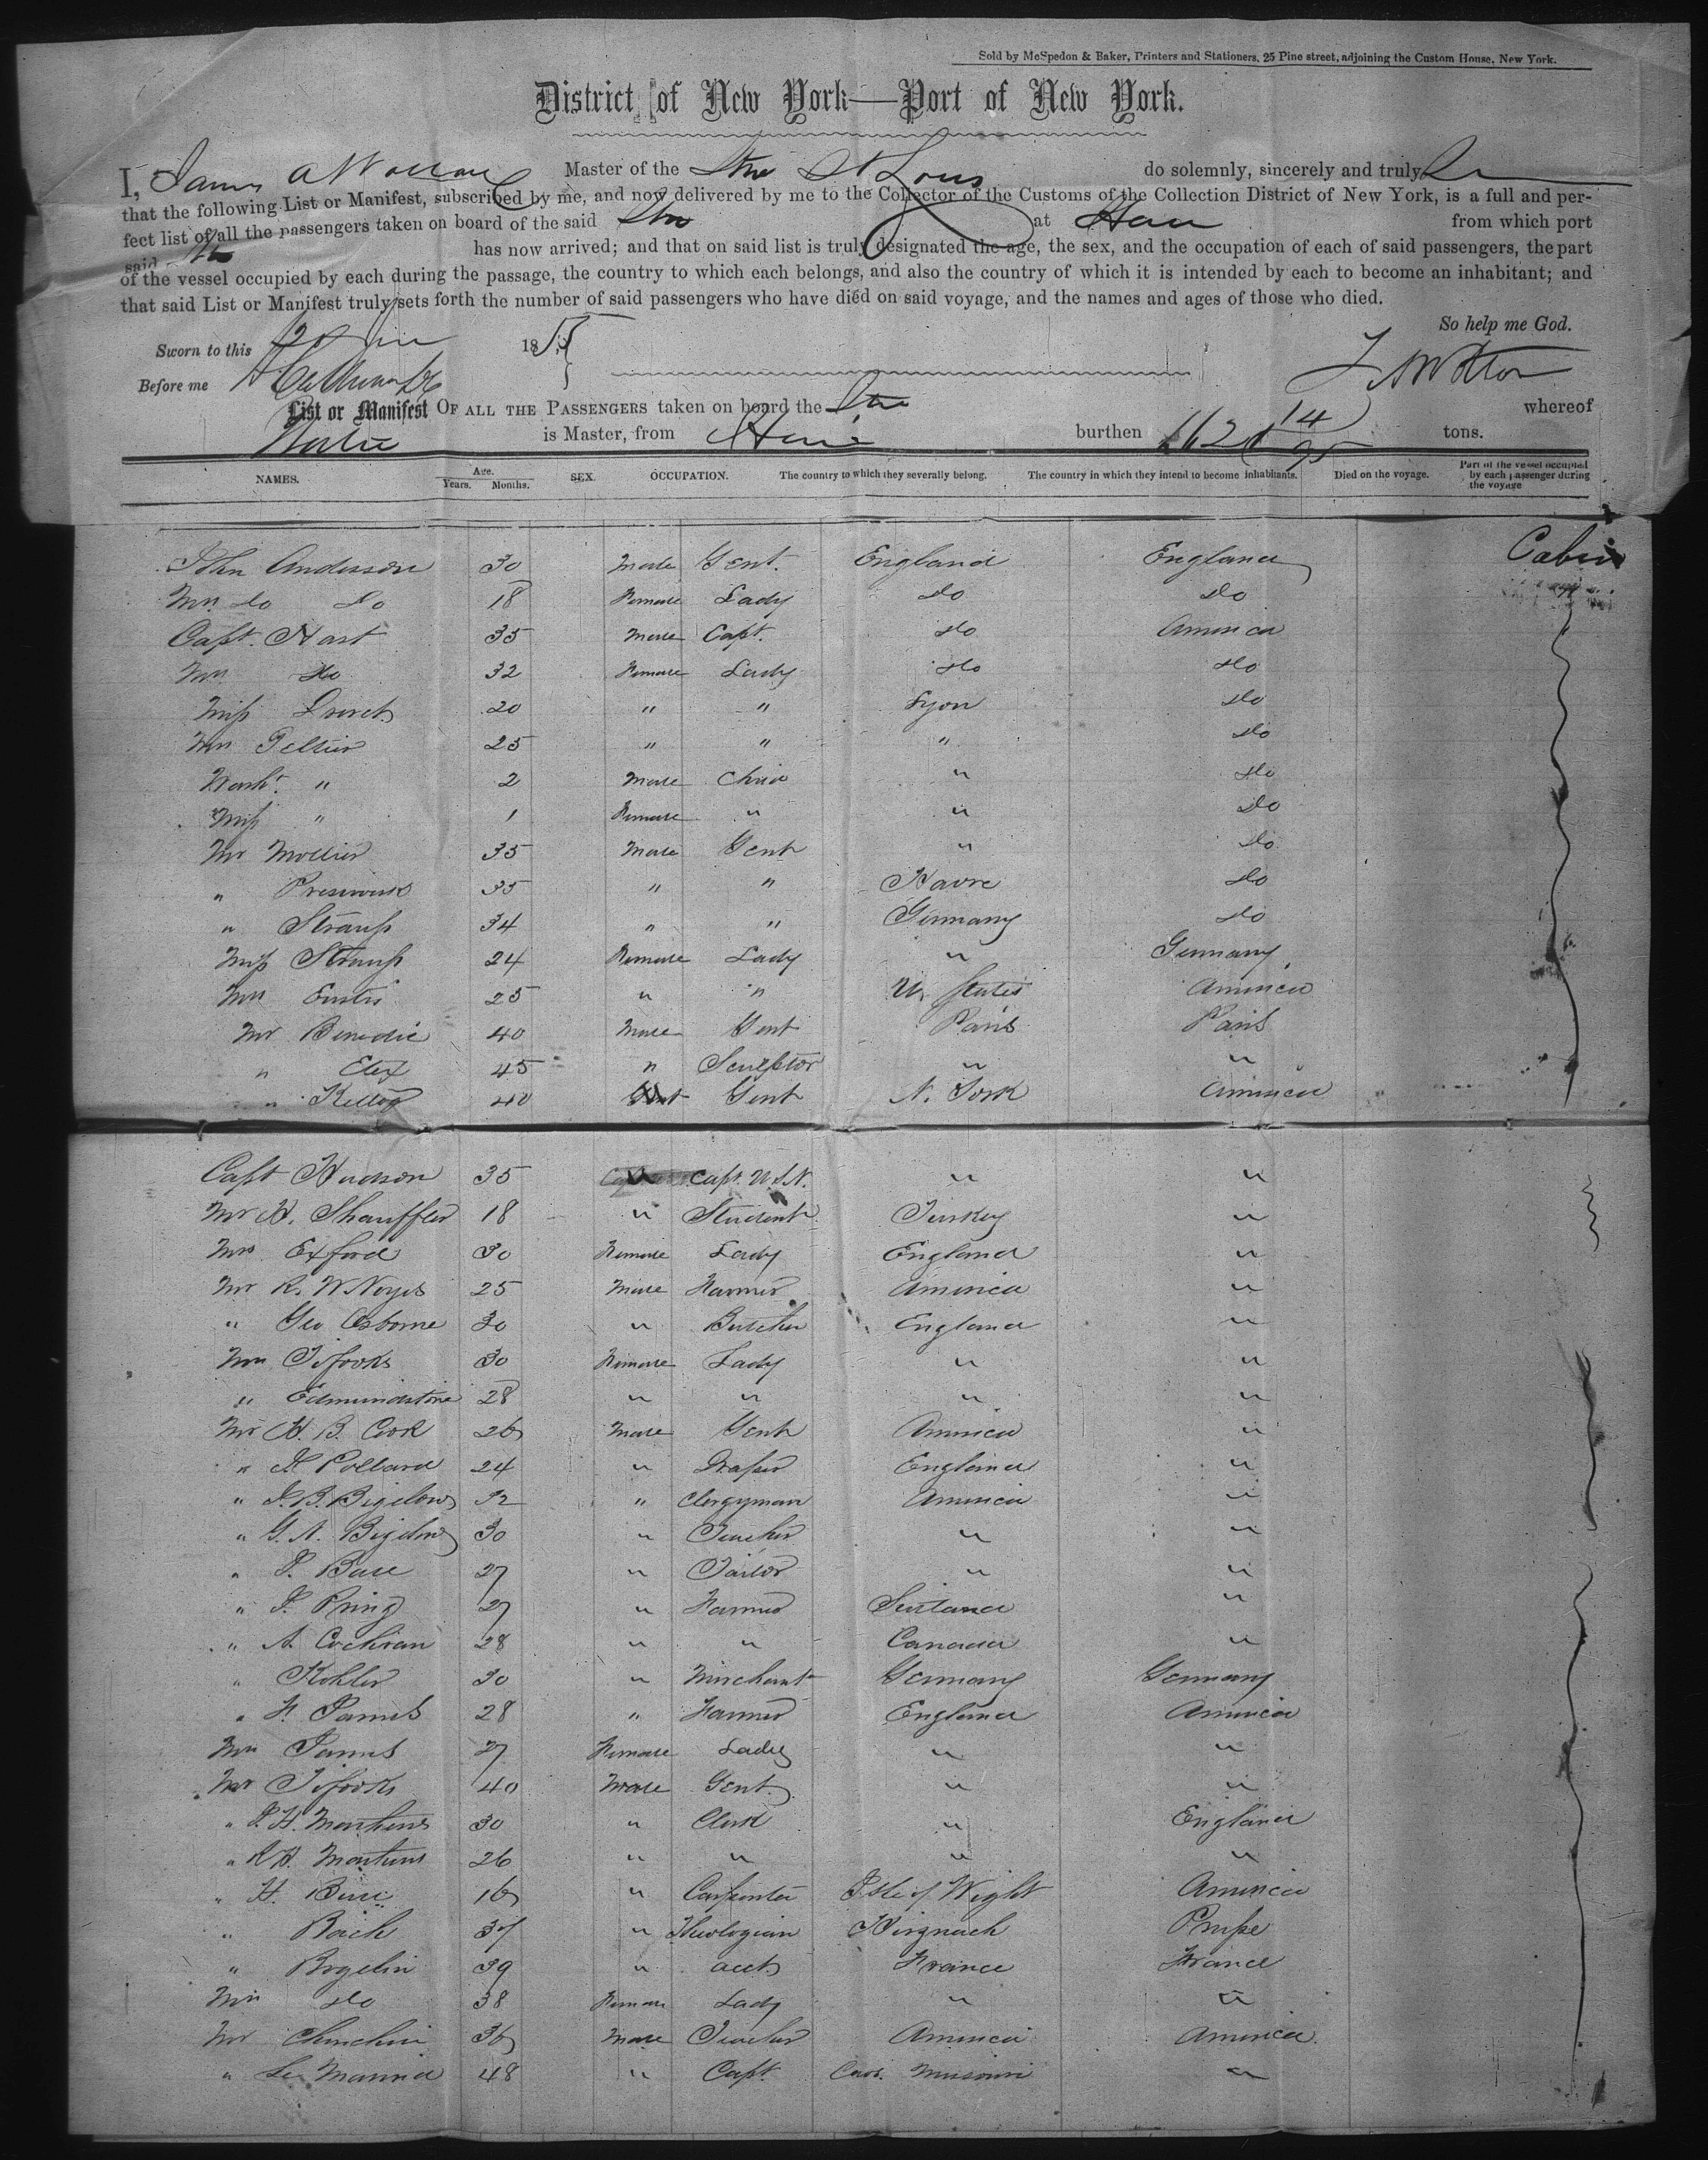 Sold by McSpedon & Baker, Printers and Stationers, 25 Pine street, adjoining the Custom House, New York.
District of New York—Port of New York.
I, James A Master of the Str St Louis do solemnly, sincerely and truly
that the following List or Manifest, subscribed by me, and now delivered by me to the Collector of the Customs of the Collection District of New York, is a full and per-
fect list of all the passengers taken on board of the said Str at from which port
said Str has now arrived; and that on said list is truly designated the age, the sex, and the occupation of each of said passengers, the part
of the vessel occupied by each during the passage, the country to which each belongs, and also the country of which it is intended by each to become an inhabitant; and
that said List or Manifest truly sets forth the number of said passengers who have died on said voyage, and the names and ages of those who died.
So help me God.
Sworn to this 1855
Before me
List or Manifest OF ALL THE PASSENGERS taken on board the Str whereof
is Master, from burthen tons.
NAMES. Age. Years. Months. SEX. OCCUPATION. The country to which they severally belong. The country in which they intend to become inhabitants. Died on the voyage. Part of the vessel occupied by each passenger during the voyage
John Anderson 30 Male Gent. England England Cabin
Mrs do do 18 Female Lady do do
Capt. Hart 35 Male Capt. do America
Mrs do 32 Female Lady do do
Miss 20 " " Lyon do
Mrs Peltier 25 " " " do
" 2 Male Child " do
Miss " 1 Female " " do
Mr Mollier 35 Male Gent " do
" 35 " " Havre do
" Strauss 34 " " Germany do
Miss Strauss 24 Female Lady " Germany
Mrs Eustis 25 " " U. States America
Mr Benedic 40 Male Gent Paris Paris
" Etex 45 " Sculptor " "
" Kellog 40 Gent N. York America
Capt Hudson 35 " Capt. U.S.N. " "
Mr H. Shauffler 18 " Student Turkey "
Mrs Exford 30 Female Lady England "
Mr R. W Noyes 25 Male Farmer America "
" Geo Osborne 30 " Butcher England "
Mrs 30 Female Lady " "
" Edmundstone 28 " " " "
Mr H. B. Cook 26 Male Gent America "
" H Pollard 24 " Draper England "
" J. B. Bigelow 32 " Clergyman America "
" G. A. Bigelow 30 " Teacher " "
" J. 27 " Tailor " "
" J. Pring 27 " Farmer "
" A. Cochran 28 " " Canada "
" Kohler 30 " Merchant Germany Germany
" H. James 28 " Farmer England America
Mrs James 27 Female Lady " "
Mr 40 Male Gent. " "
" J. H. 30 " Clerk " England
" 26 " " " "
" H. 16 " Carpenter Isle of Wight America
" Bach 37 " Theologian
" 39 " France France
Mrs do 38 Female Lady " "
Mr 36 Male Teacher America America
" 48 " Capt. "